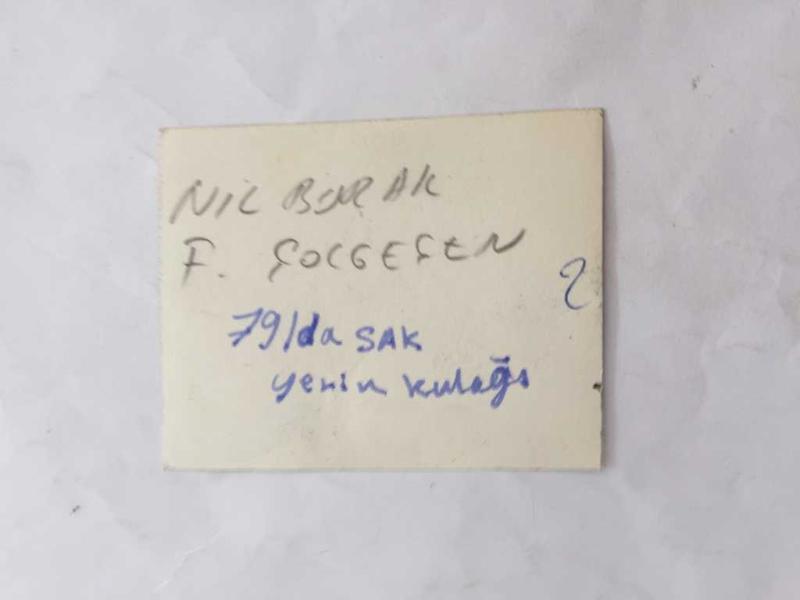 NİL BURAK
F. ÇÖLGEÇEN
79/da SAK
yenin kulağı
2